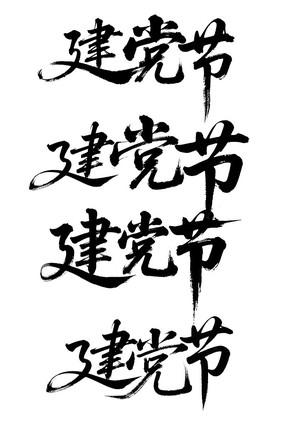 建党节
建党节
建党节
建党节